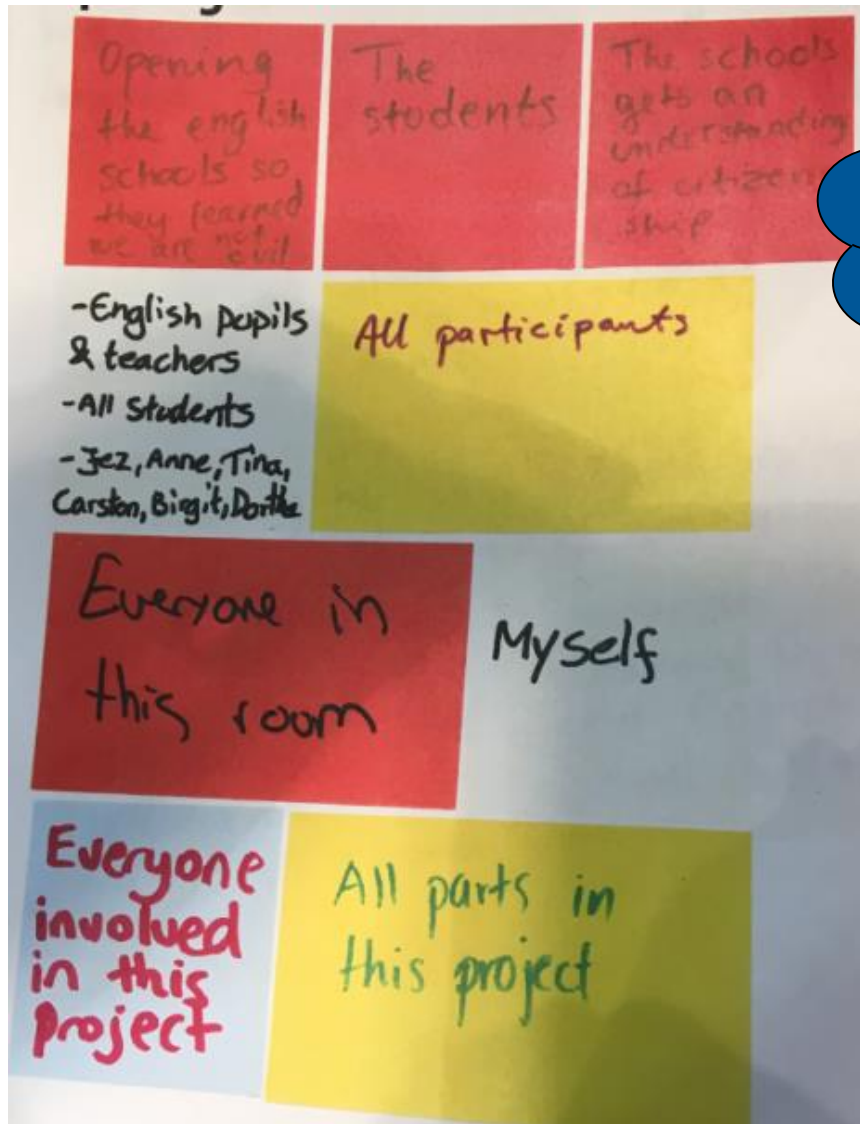 Opening
the english
schools so
they learned
we are not
evil
The
students
The schools
gets an
understanding
of citizen
ship
-English pupils
& teachers
-All Students
-Jez, Anne, Tina,
Carsten, Birgit, Dorthe
All participants
Everyone in
this room
Myself
Everyone
involved
in this
project
All parts in
this project